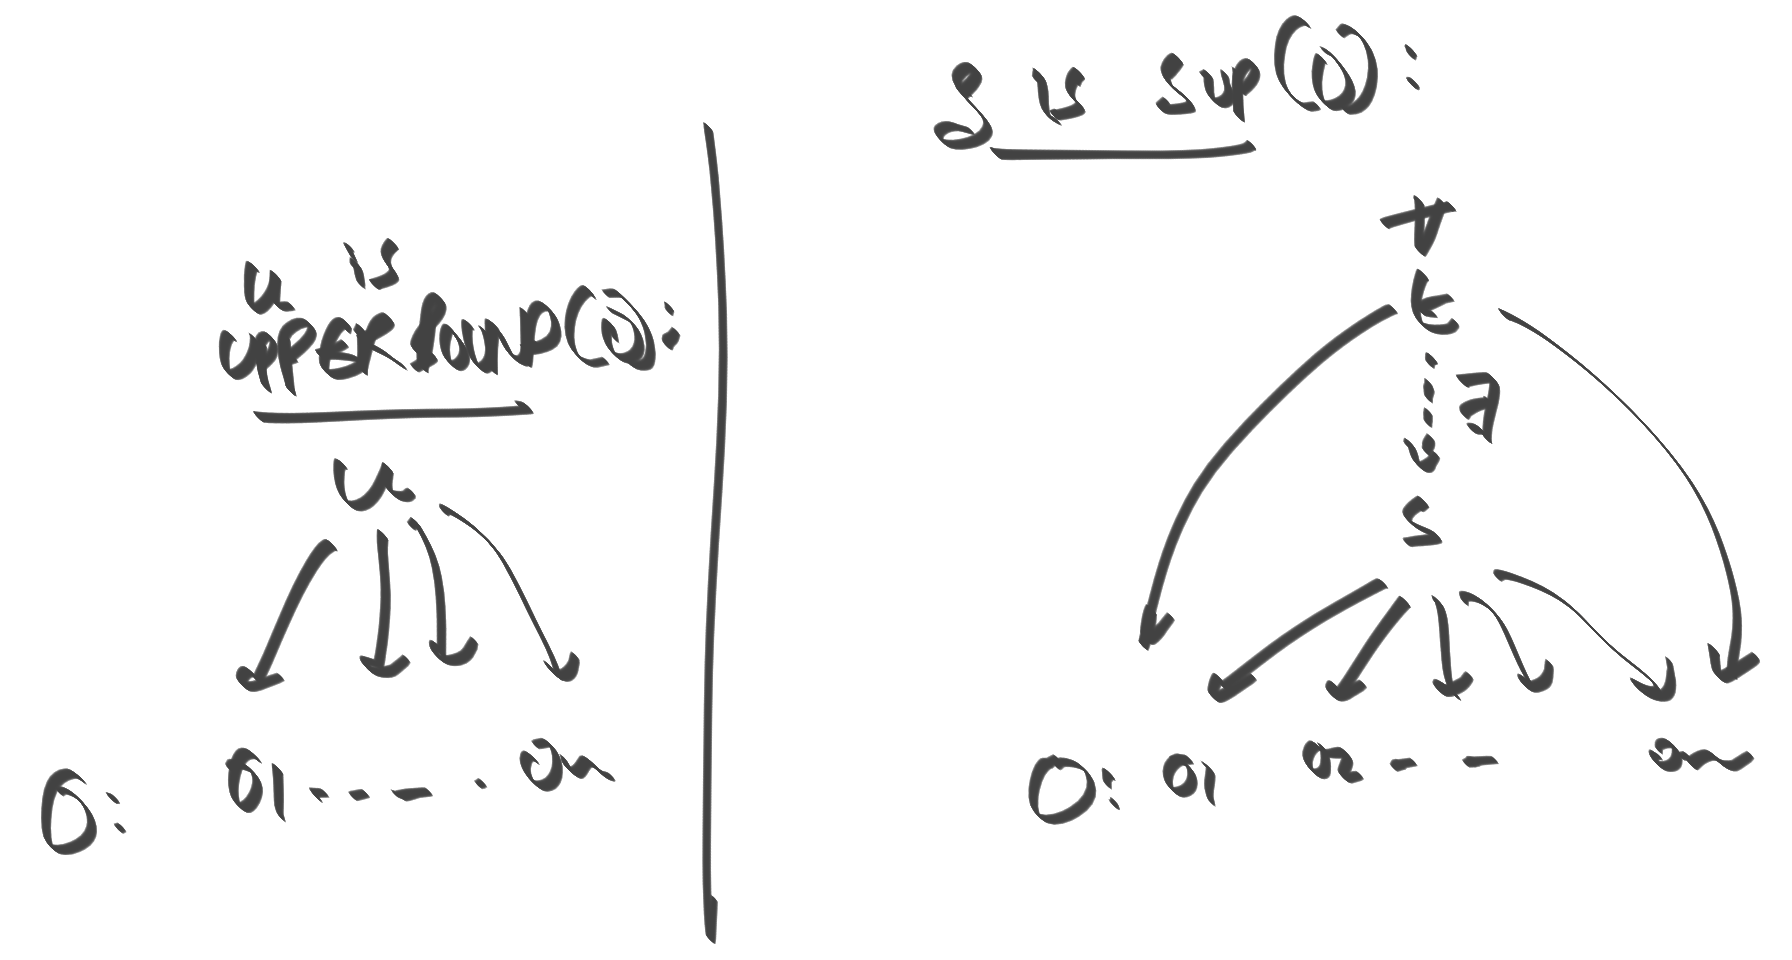 u is
UPPERBOUND(O):
u
O: o1 . - - - . on
S is sup(O):
∀
t
∃
s
O: o1 o2 - - on